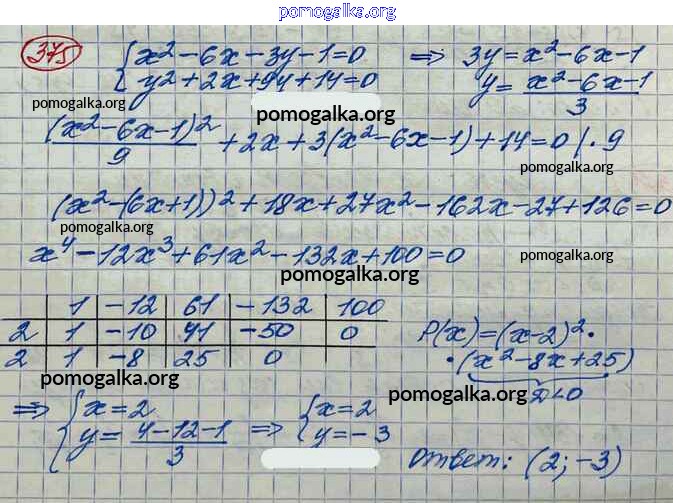 pomogalka.org
375 { x² - 6x - 3y - 1 = 0 ⇒ 3y = x² - 6x - 1
{ y² + 2x + 9y + 14 = 0 y = (x² - 6x - 1)/3
pomogalka.org pomogalka.org pomogalka.org
(x² - 6x - 1)²/9 + 2x + 3(x² - 6x - 1) + 14 = 0 | · 9
pomogalka.org
(x² - (6x + 1))² + 18x + 27x² - 162x - 27 + 126 = 0
pomogalka.org
x⁴ - 12x³ + 61x² - 132x + 100 = 0
pomogalka.org pomogalka.org
1 -12 61 -132 100
2 1 -10 41 -50 0 P(x) = (x - 2)² ·
2 1 -8 25 0 · (x² - 8x + 25)
pomogalka.org pomogalka.org D < 0
⇒ { x = 2 ⇒ { x = 2
{ y = (4 - 12 - 1)/3 { y = -3
pomogalka.org Ответ: (2; -3)